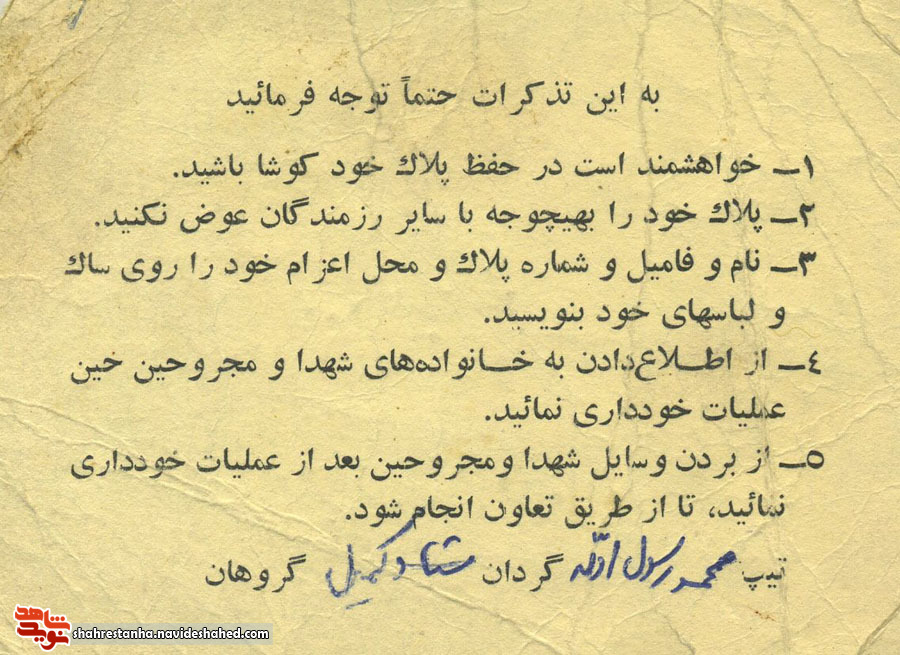 به این تذکرات حتماً توجه فرمائید
۱ـ خواهشمند است در حفظ پلاك خود کوشا باشید.
۲ـ پلاك خود را بهیچوجه با سایر رزمندگان عوض نکنید.
۳ـ نام و فامیل و شماره پلاك و محل اعزام خود را روی ساك
و لباسهای خود بنویسید.
٤ـ از اطـلاع‌دادن به خـانواده‌های شهدا و مجروحین خین
عملیات خودداری نمائید.
٥ـ از بردن وسایل شهدا ومجروحین بعد از عملیات خودداری
نمائید، تا از طریق تعاون انجام شود.
تیپ محمد رسول الله گردان کمیل گروهان
شاهد
نوید
shahrestanha.navideshahed.com